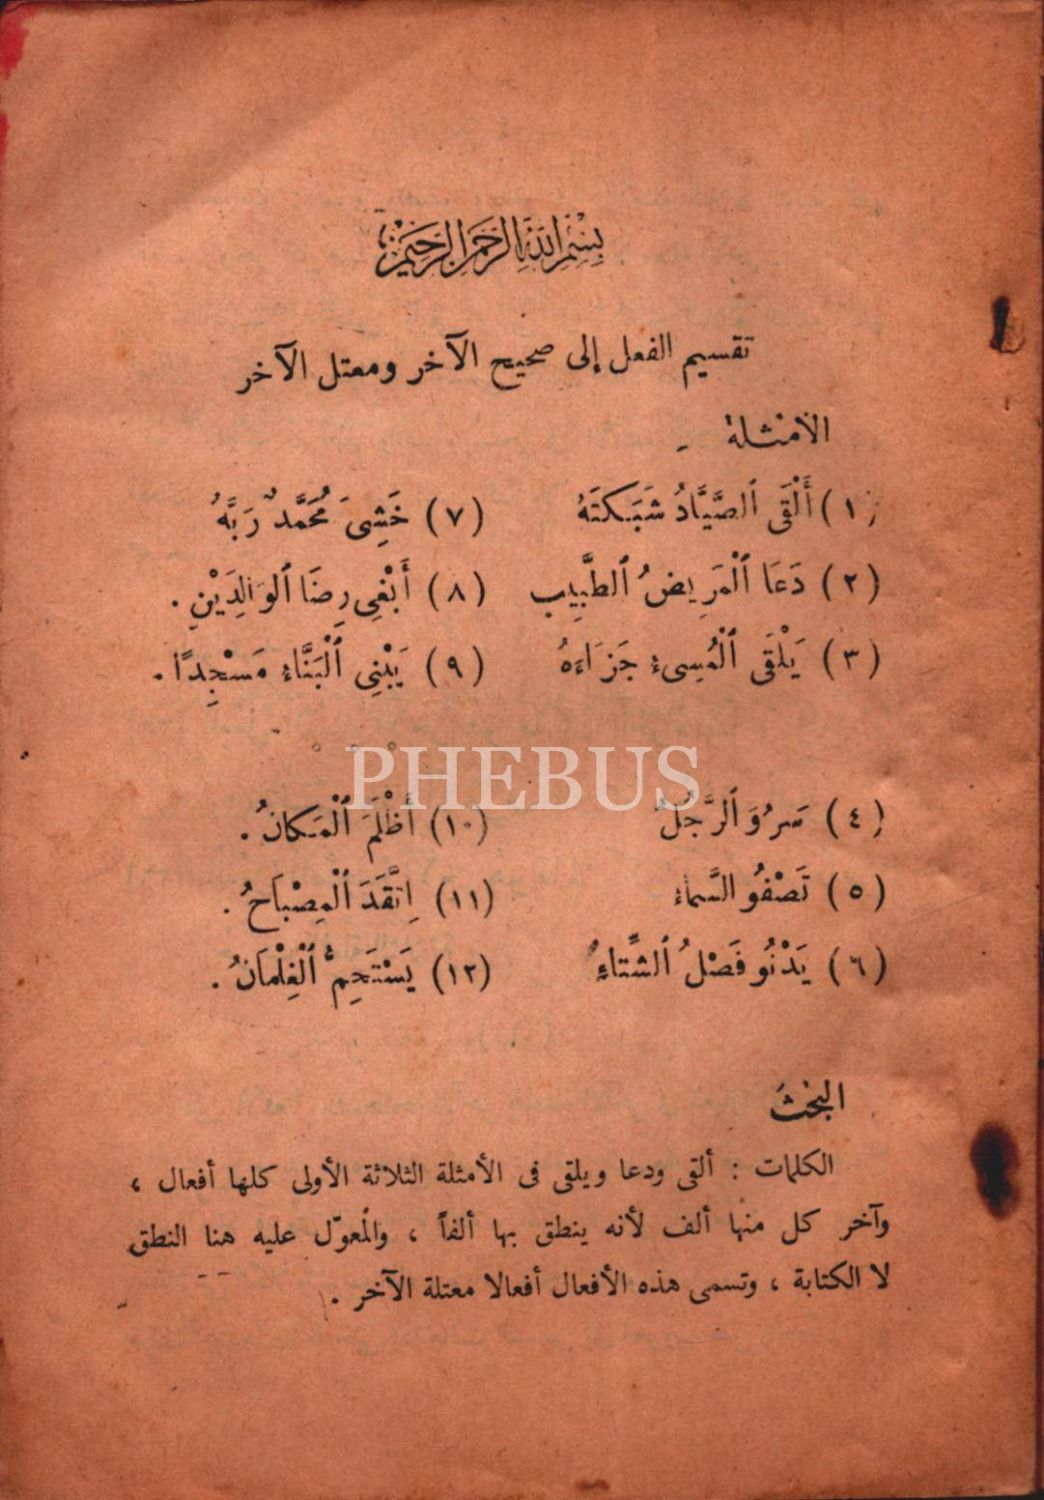 بِسْمِ اللَّهِ الرَّحْمَنِ الرَّحِيمِ
تقسيم الفعل إلى صحيح الآخر ومعتل الآخر
الأمثلة
(١) أَلْقَى الصَّيَّادُ شَبَكَتَهُ (٧) خَشِىَ مُحَمَّدٌ رَبَّهُ
(٢) دَعَا الْمَرِيضُ الطَّبِيبَ (٨) أَبْغِى رِضَا الوَالِدَيْنِ .
(٣) يَلْقَى الْمُسِىءُ جَزَاءَهُ (٩) يَبْنِى الْبَنَّاءُ مَسْجِدًا .
PHEBUS
(٤) سَرُوَ الرَّجُلُ (١٠) أَظْلَمَ الْمَكَانُ .
(٥) تَصْفُو السَّمَاءُ (١١) اِتَّقَدَ الْمِصْبَاحُ .
(٦) يَدْنُو فَصْلُ الشِّتَاءِ (١٢) يَسْتَحِمُّ الْغِلْمَانُ .
البحث
الكلمات : ألقى ودعا ويلقى فى الأمثلة الثلاثة الأولى كلها أفعال ،
وآخر كل منها ألف لأنه ينطق بها ألفاً ، والمعوّل عليه هنا النطق
لا الكتابة ، وتسمى هذه الأفعال أفعالا معتلة الآخر .